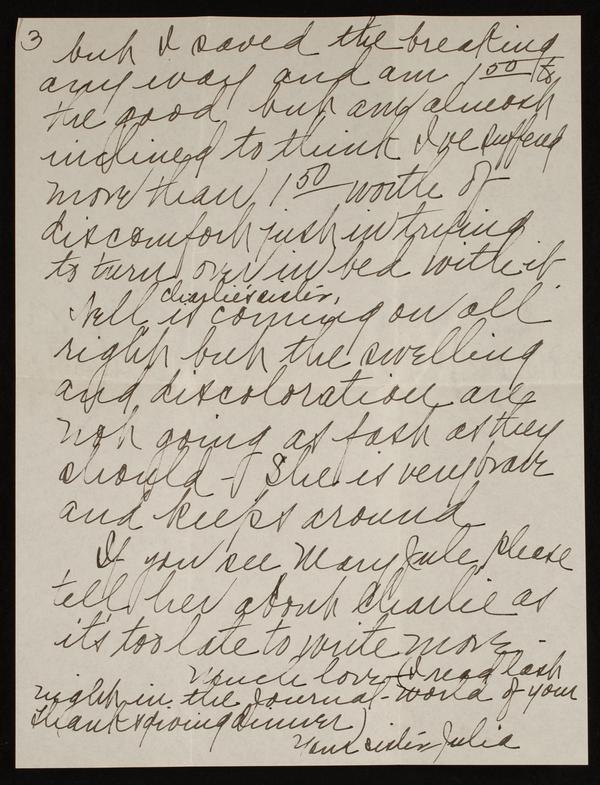 3
but I saved the breaking
any way and am 1 50 to
the good but am almost
inclined to think I've suffered
more than 1 50 worth of
discomfort just in trying
to turn over in bed with it
Charlie's sister,
Nell is coming on all
right but the swelling
and discoloration are
not going as fast as they
should - She is very brave
and keeps around
If you see Mary Jule, please
tell her about Charlie as
it's too late to write more -
Much love (I read last
night in the Journal-World of your
Thanksgiving dinner)
Your sister Julia